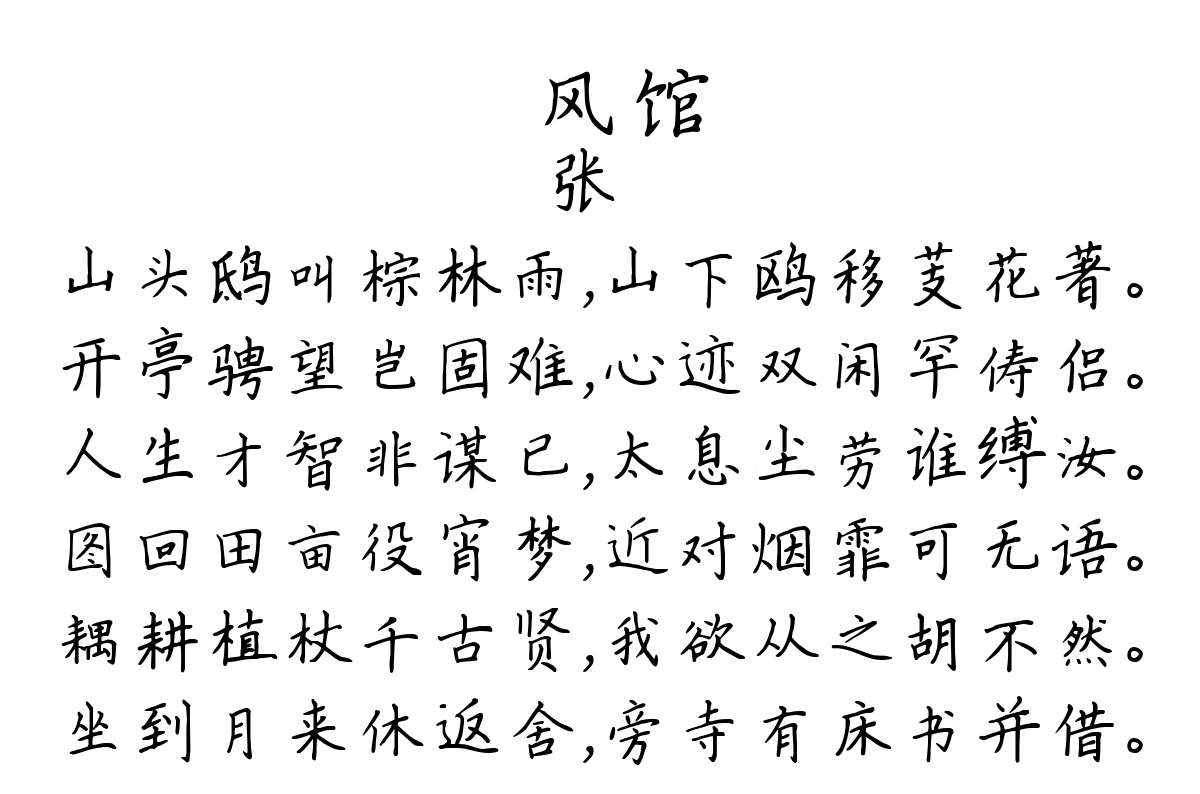 风馆
张
山头鸱叫棕林雨,山下鸥移芰花著。
开亭骋望岂固难,心迹双闲罕俦侣。
人生才智非谋已,太息尘劳谁缚汝。
图回田亩役宵梦,近对烟霏可无语。
耦耕植杖千古贤,我欲从之胡不然。
坐到月来休返舍,旁寺有床书并借。